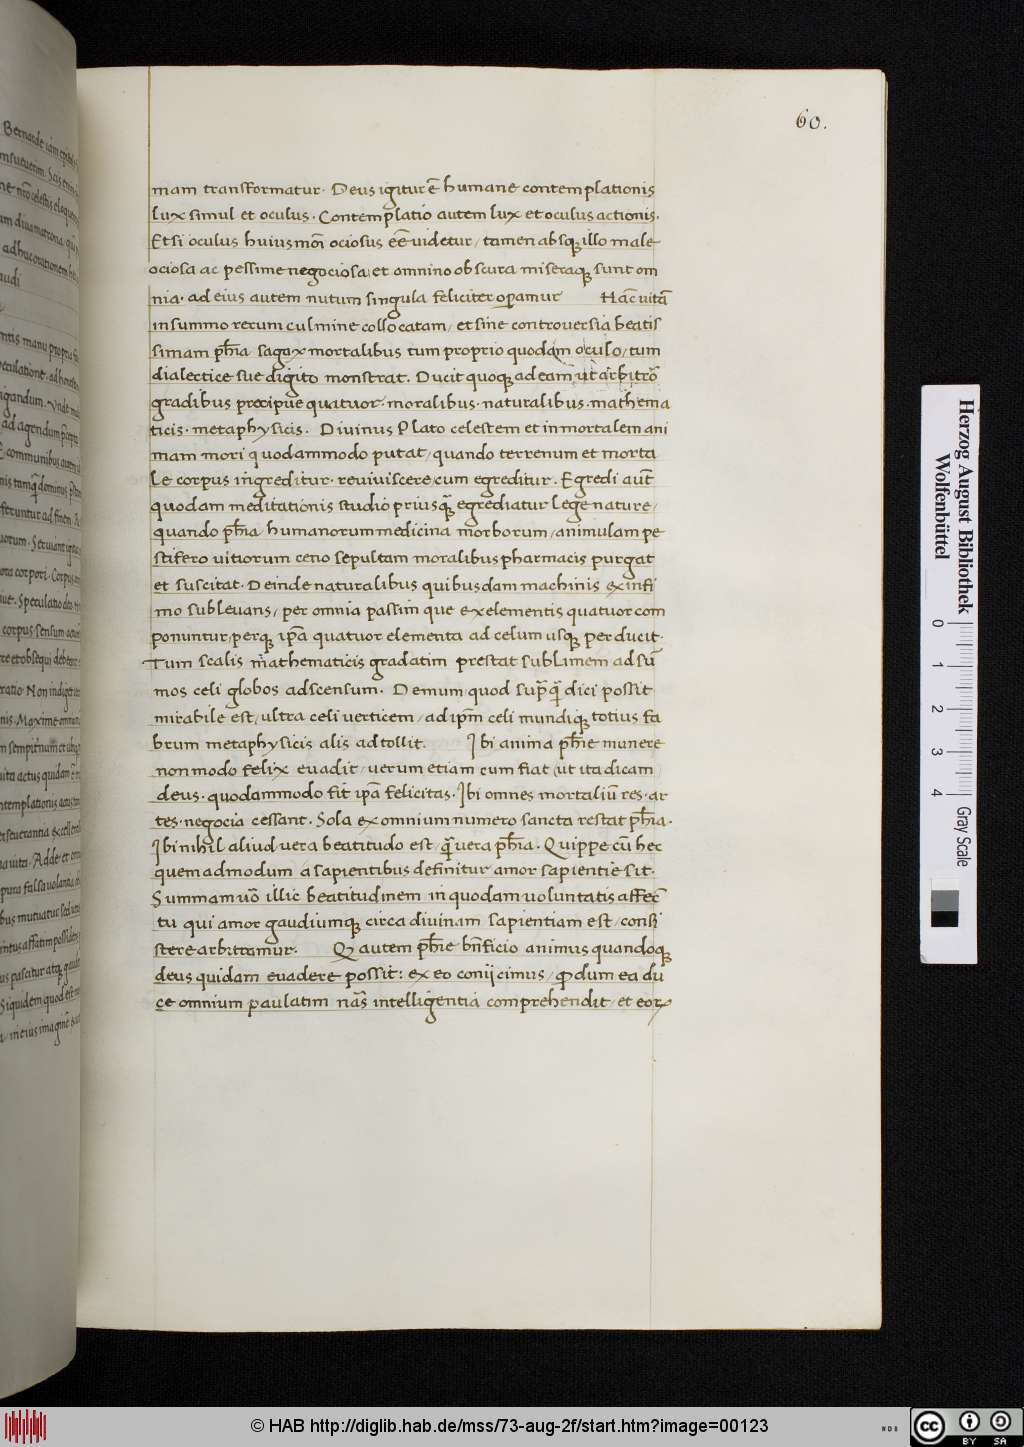 60.
mam transformatur. Deus igitur ē humane contemplationis
lux simul et oculus. Contemplatio autem lux et oculus actionis.
Etsi oculus huiusmōi ociosus eē videtur/ tamen absq illo male
ociosa ac pessime negociosa et omnino obscura miseraq sunt om
nia. ad eius autem nutum singula feliciter operamur Hāc uitā
in summo rerum culmine collocatam/ et sine controuersia beatis
simam ph̄ia sagax mortalibus tum proprio quodam oculo/ tum
dialectice sue digito monstrat. Ducit quoq ad eam ut arbitrō
gradibus precipue quatuor. moralibus. naturalibus. mathema
ticis. metaphysicis. Diuinus Plato celestem et inmortalem ani
mam mori quodammodo putat/ quando terrenum et morta
le corpus ingreditur. reuiuiscere cum egreditur. Egredi aūt
quodam meditationis studio priusq̄ egrediatur lege nature/
quando ph̄ia humanorum medicina morborum/ animulam pe
stifero uitiorum ceno sepultam moralibus pharmacis purgat
et suscitat. Deinde naturalibus quibusdam machinis ex infi
mo subleuans/ per omnia passim que ex elementis quatuor com
ponuntur/ perq ip̄a quatuor elementa ad celum usq perducit.
Tum scalis mathematicis gradatim prestat sublimem ad sū
mos celi globos adscensum. Demum quod sup̄q̄ dici possit
mirabile est/ ultra celi uerticem/ ad ip̄m celi mundiq totius fa
brum metaphysicis alis adtollit. Ibi anima ph̄ie munere
non modo felix euadit/ uerum etiam cum fiat ut ita dicam
deus. quodammodo fit ip̄a felicitas. Ibi omnes mortaliū res. ar
tes. negocia cessant. Sola ex omnium numero sancta restat ph̄ia.
Ibi nihil aliud uera beatitudo est q̄ uera ph̄ia. Quippe cū hec
quemadmodum a sapientibus definitur amor sapientie sit.
Summam uō illic beatitudinem in quodam uoluntatis affec
tu qui amor gaudiumq circa diuinam sapientiam est/ consi
stere arbitramur. Q autem ph̄ie bn̄ficio animus quandoq
deus quidam euadere possit: ex eo coniicimus/ q dum ea du
ce omnium paulatim nās intelligentia comprehendit/ et eorꝝ
Herzog August Bibliothek
Wolfenbüttel
0 1 2 3 4
Gray Scale
© HAB http://diglib.hab.de/mss/73-aug-2f/start.htm?image=00123
WDB
cc BY SA